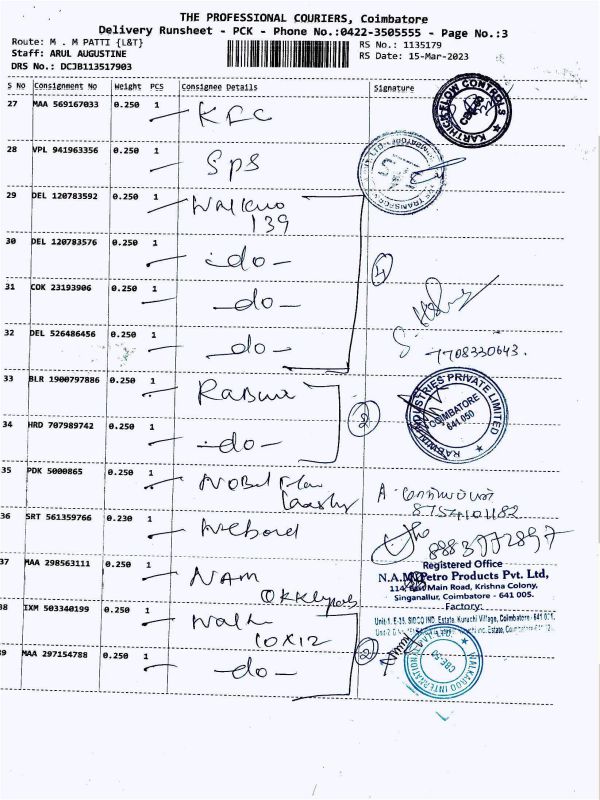 THE PROFESSIONAL COURIERS, Coimbatore
Delivery Runsheet - PCK - Phone No.:0422-3505555 - Page No.:3
Route: M . M PATTI {L&T}
RS No.: 1135179
Staff: ARUL AUGUSTINE
RS Date: 15-Mar-2023
DRS No.: DCJB113517903
S No Consignment No Weight PCS Consignee Details Signature
27 MAA 569167033 0.250 1 KFC
KARTHICK FLOW CONTROLS
28 VPL 941963356 0.250 1 SPS
29 DEL 120783592 0.250 1
139
30 DEL 120783576 0.250 1 -do-
4
31 COK 23193906 0.250 1 -do-
32 DEL 526486456 0.250 1 -do-
7708330643.
33 BLR 1900797886 0.250 1
INDUSTRIES PRIVATE LIMITED
COIMBATORE
641 050
2
34 HRD 707989742 0.250 1 -do-
35 PDK 5000865 0.250 1
36 SRT 561359766 0.230 1
8883772897
37 MAA 298563111 0.250 1 NAM
Registered Office
N.A.M. Petro Products Pvt. Ltd,
114, East Main Road, Krishna Colony,
Singanallur, Coimbatore - 641 005.
Factory:
38 IXM 503340199 0.250 1
10X12
Unit-1. E-19, SIDCO IND. Estate, Kurichi Village, Coimbatore-641 021.
2
39 MAA 297154788 0.250 1 -do-
WALKAROO INTERNATIONAL
CBE-50